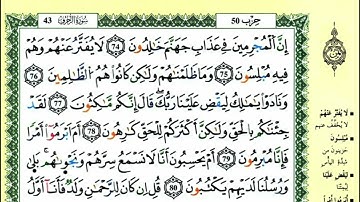 43 سورة الزخرف
حزب 50
إِنَّ ٱلْمُجْرِمِينَ فِي عَذَابِ جَهَنَّمَ خَٰلِدُونَ 74 لَا يُفَتَّرُ عَنْهُمْ وَهُمْ
فِيهِ مُبْلِسُونَ 75 وَمَا ظَلَمْنَٰهُمْ وَلَٰكِن كَانُوا۟ هُمُ ٱلظَّٰلِمِينَ 76
وَنَادَوْا۟ يَٰمَٰلِكُ لِيَقْضِ عَلَيْنَا رَبُّكَ قَالَ إِنَّكُم مَّٰكِثُونَ 77 لَقَدْ
جِئْنَٰكُم بِٱلْحَقِّ وَلَٰكِنَّ أَكْثَرَكُمْ لِلْحَقِّ كَٰرِهُونَ 78 أَمْ أَبْرَمُوٓا۟ أَمْرًا
فَإِنَّا مُبْرِمُونَ 79 أَمْ يَحْسِبُونَ أَنَّا لَا نَسْمَعُ سِرَّهُمْ وَنَجْوَىٰهُم بَلَىٰ
وَرُسُلُنَا لَدَيْهِمْ يَكْتُبُونَ 80 قُلْ إِن كَانَ لِلرَّحْمَٰنِ وَلَدٌ فَأَنَا۠ أَوَّلُ
لَا يُفَتَّرُ عَنْهُمْ
لا يُخفَّف عنهم
مُبْلِسُونَ
حزينون من
شدة اليأس
لِيَقْضِ عَلَيْنَا
ليُمتنا